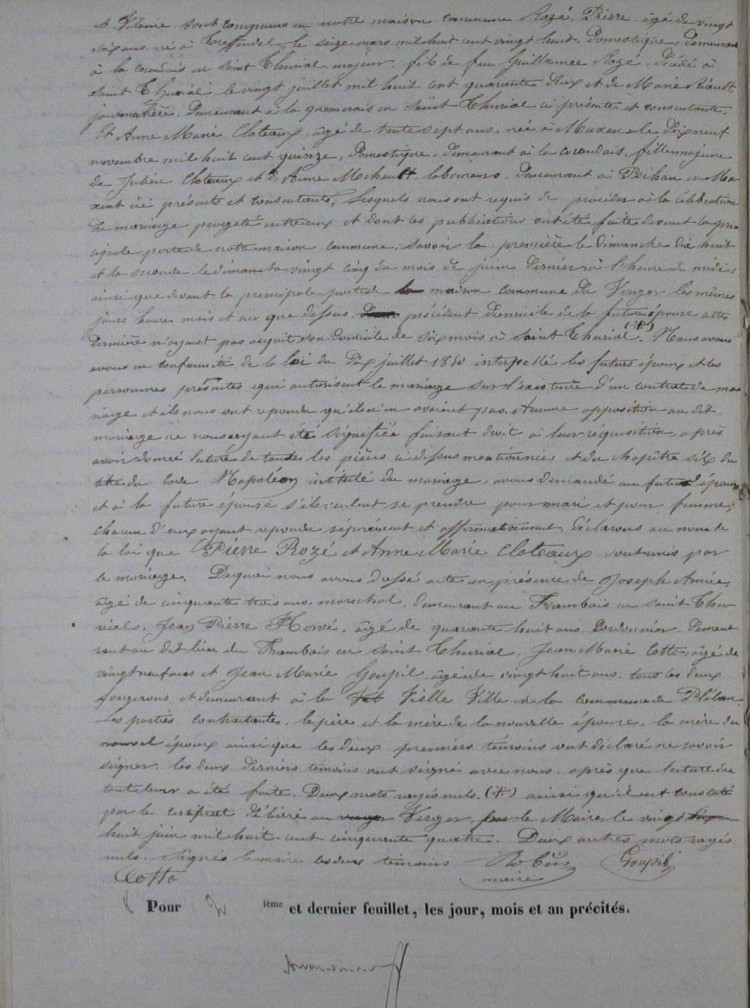 et Vilaine, sont comparus en notre maison commune Rozé, Pierre, âgé de vingt
six ans, né à Treffendel le seize mars mil huit cent vingt huit, Domestique, Demeurant
à la cocudais en Saint Thurial majeur fils de feu Guillaume Rozé, Décédé à
Saint Thurial le vingt juillet mil huit cent quarante dix et de Marie
journalière, Demeurant à la en Saint Thurial ci présente et consentante.
Et Anne Marie Cloteaux, âgé de trente sept ans, née à Maxent le Dix neuf
novembre mil huit cent quinze, Domestique, Demeurant à la cocudais, fille majeure
de Julien Cloteaux et d'Anne Michault laboureurs, Demeurant à en Ma
xent ici présents et consentants, lesquels nous ont requis de procéder à la célébration
de mariage projeté entre eux et dont les publications ont été faite devant la prin
cipale porte de notre maison commune; savoir la première le dimanche dix huit
et la seconde le dimanche vingt cinq du mois de juin dernier à l'heure de midi;
ainsi que devant la principale porte de la maison commune du Verger les mêmes
jours heures mois et an que dessus précédent domicile de la future épouse cette
Dernière n'ayant pas acquit son domicile de six mois à Saint Thurial. (*) Nous avons
avons en conformité de la loi du Dix juillet 1850 interpellé les futurs époux et les
personnes présentes qui autorisent le mariage sur l'existence d'un contrat de ma
riage et ils nous ont répondu qu'ils n'en avaient pas. Aucune opposition au dit
mariage ne nous ayant été signifiée faisant droit à leur réquisition, après
avoir donné lecture de toutes les pièces ci dessus mentionnées et du chapitre six du
titre du Code Napoléon intitulé du mariage, avons demandé au futur époux
et à la future épouse s'ils veulent se prendre pour mari et pour femme;
chacun d'eux ayant répondu séparément et affirmativement, Déclarons au nom de
la loi que Pierre Rozé et Anne Marie Cloteaux sont unis par
le mariage. De quoi nous avons dressé acte en présence de Joseph
âgé de cinquante trois ans, maréchal, demeurant au Frambois en saint Thu
rial, Jean Pierre Hervé, âgé de quarante huit ans, Cordonnier, Demeu
rant au dit lieu du Frambois en saint Thurial, Jean Marie Cotto, âgé de
vingt neuf ans et Jean Marie Goupil, âgé de vingt huit ans, tous les deux
forgerons et demeurant à la Vieille Ville de la commune de Plélan.
Les parties contractantes, le père et la mère de la nouvelle épouse, la mère du
nouvel époux ainsi que les deux premiers témoins ont déclaré ne savoir
signer, les deux derniers témoins ont signé avec nous, après que lecture du
tout leur a été faite. Deux mots rayés nuls. (*) ainsi qu'il est constaté
par le certificat délivré au Verger, par le Maire le vingt
huit juin mil huit cent cinquante quatre. Deux autres mots rayés
nuls. Signé les deux témoins
maire Goupil
Cotto
Pour 2 ième et dernier feuillet, les jour, mois et an précités.